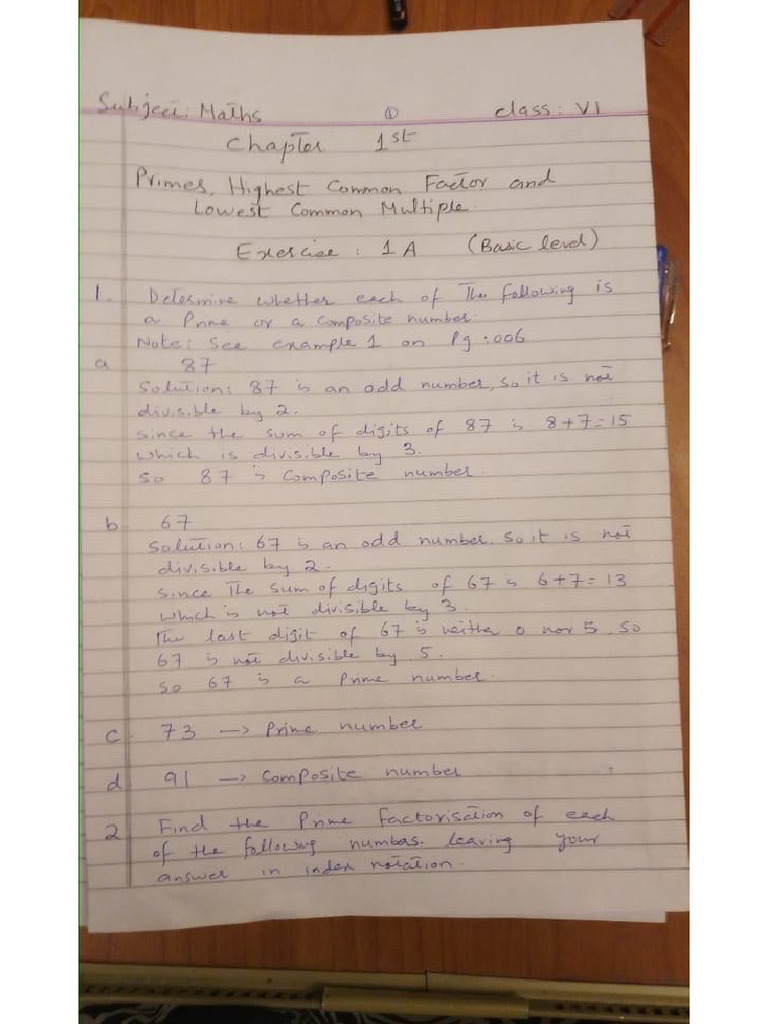 Subject: Maths ① class: VI
Chapter 1st
Primes, Highest Common Factor and
Lowest Common Multiple.
Exercise : 1A (Basic level)
1. Determine whether each of the following is
a Prime or a composite number.
Note: See example 1 on Pg:006
a 87
Solution: 87 is an odd number, so it is not
divisible by 2.
since the sum of digits of 87 is 8+7=15
which is divisible by 3.
So 87 is composite number.
b 67
Solution: 67 is an odd number. So it is not
divisible by 2.
Since the sum of digits of 67 is 6+7=13
which is not divisible by 3.
The last digit of 67 is neither 0 nor 5, so
67 is not divisible by 5.
So 67 is a Prime number.
c 73 → Prime number
d 91 → composite number
2 Find the Prime factorisation of each
of the following numbers. leaving your
answer in index notation.